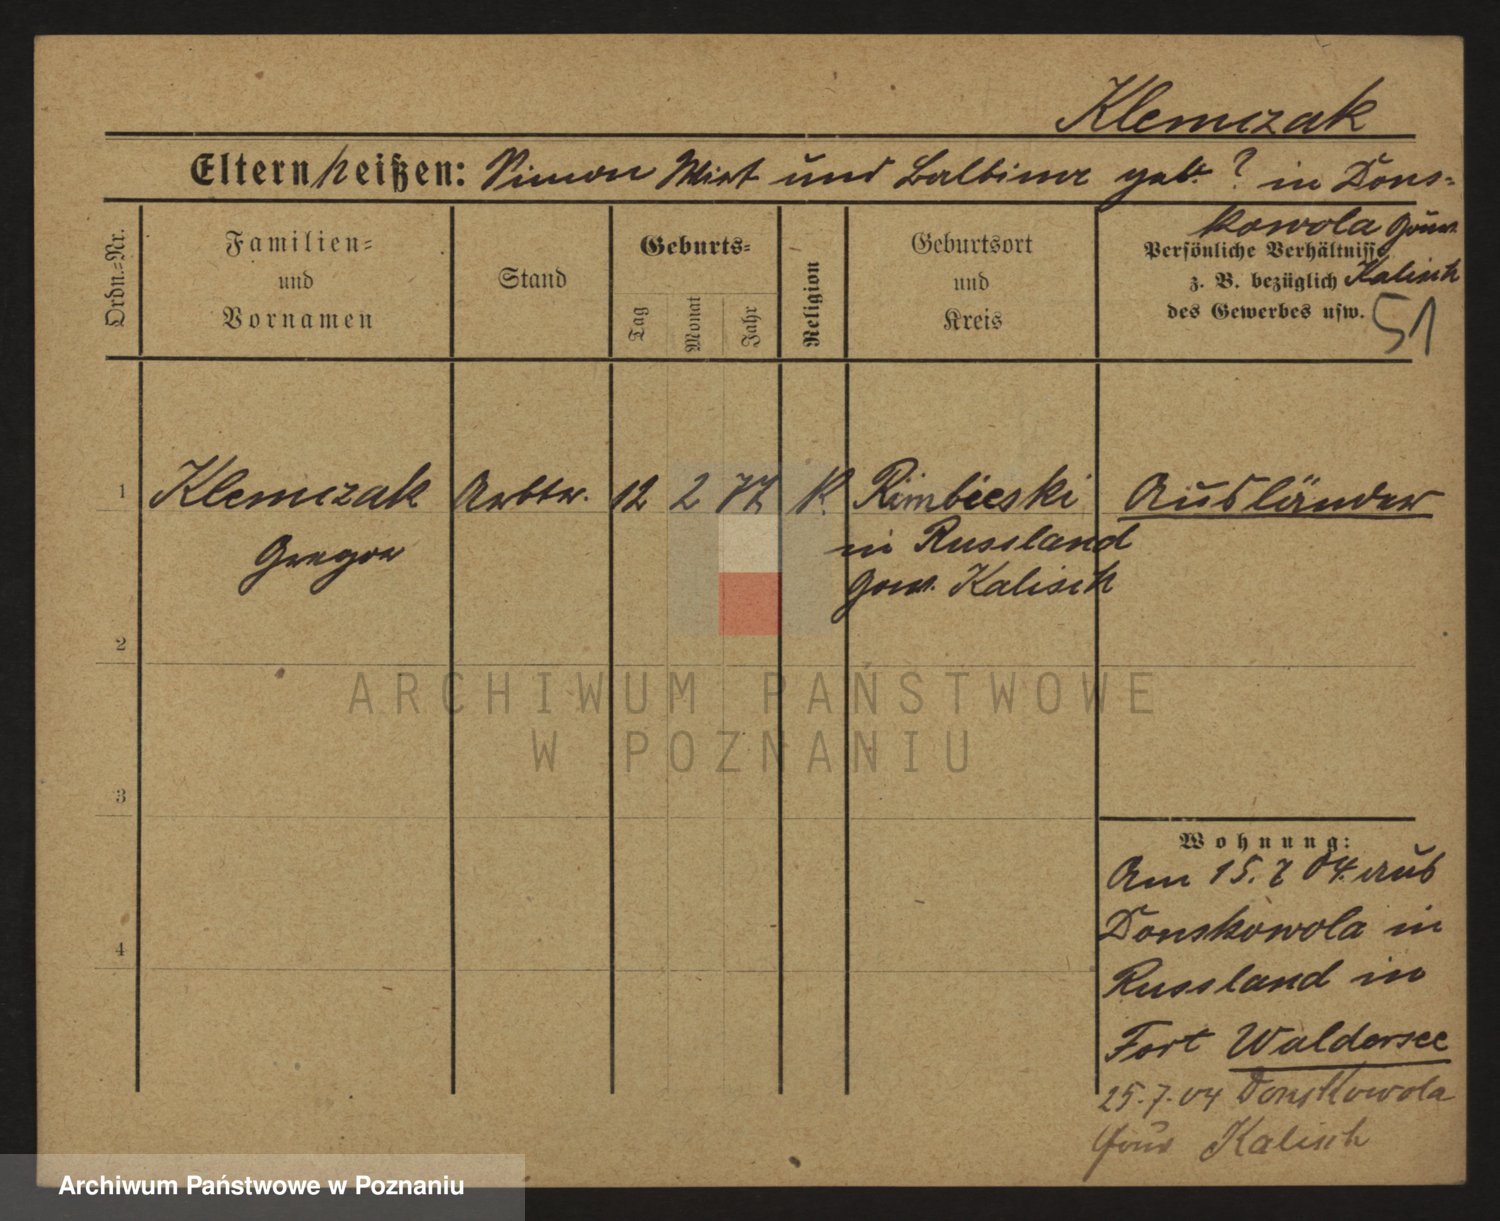 Klemczak
Eltern heißen: Simon Wirt und Balbina geb. ? in Dons=
kowola Gouv.
Kalisch
51
Ordn.=Nr.
Familien=
und
Vornamen
Stand
Geburts=
Tag
Monat
Jahr
Religion
Geburtsort
und
Kreis
Persönliche Verhältnisse
z. B. bezüglich
des Gewerbes usw.
1
Klemczak
Gregor
Arbtr.
12
2
77
K.
Rimbieski
in Russland
Gouv. Kalisch
Ausländer
2
3
4
Wohnung:
Am 15.7 04. aus
Donskowola in
Russland in
Fort Waldersee
25.7.04 Donskowola
Gouv Kalisch
ARCHIWUM PAŃSTWOWE
W POZNANIU
Archiwum Państwowe w Poznaniu